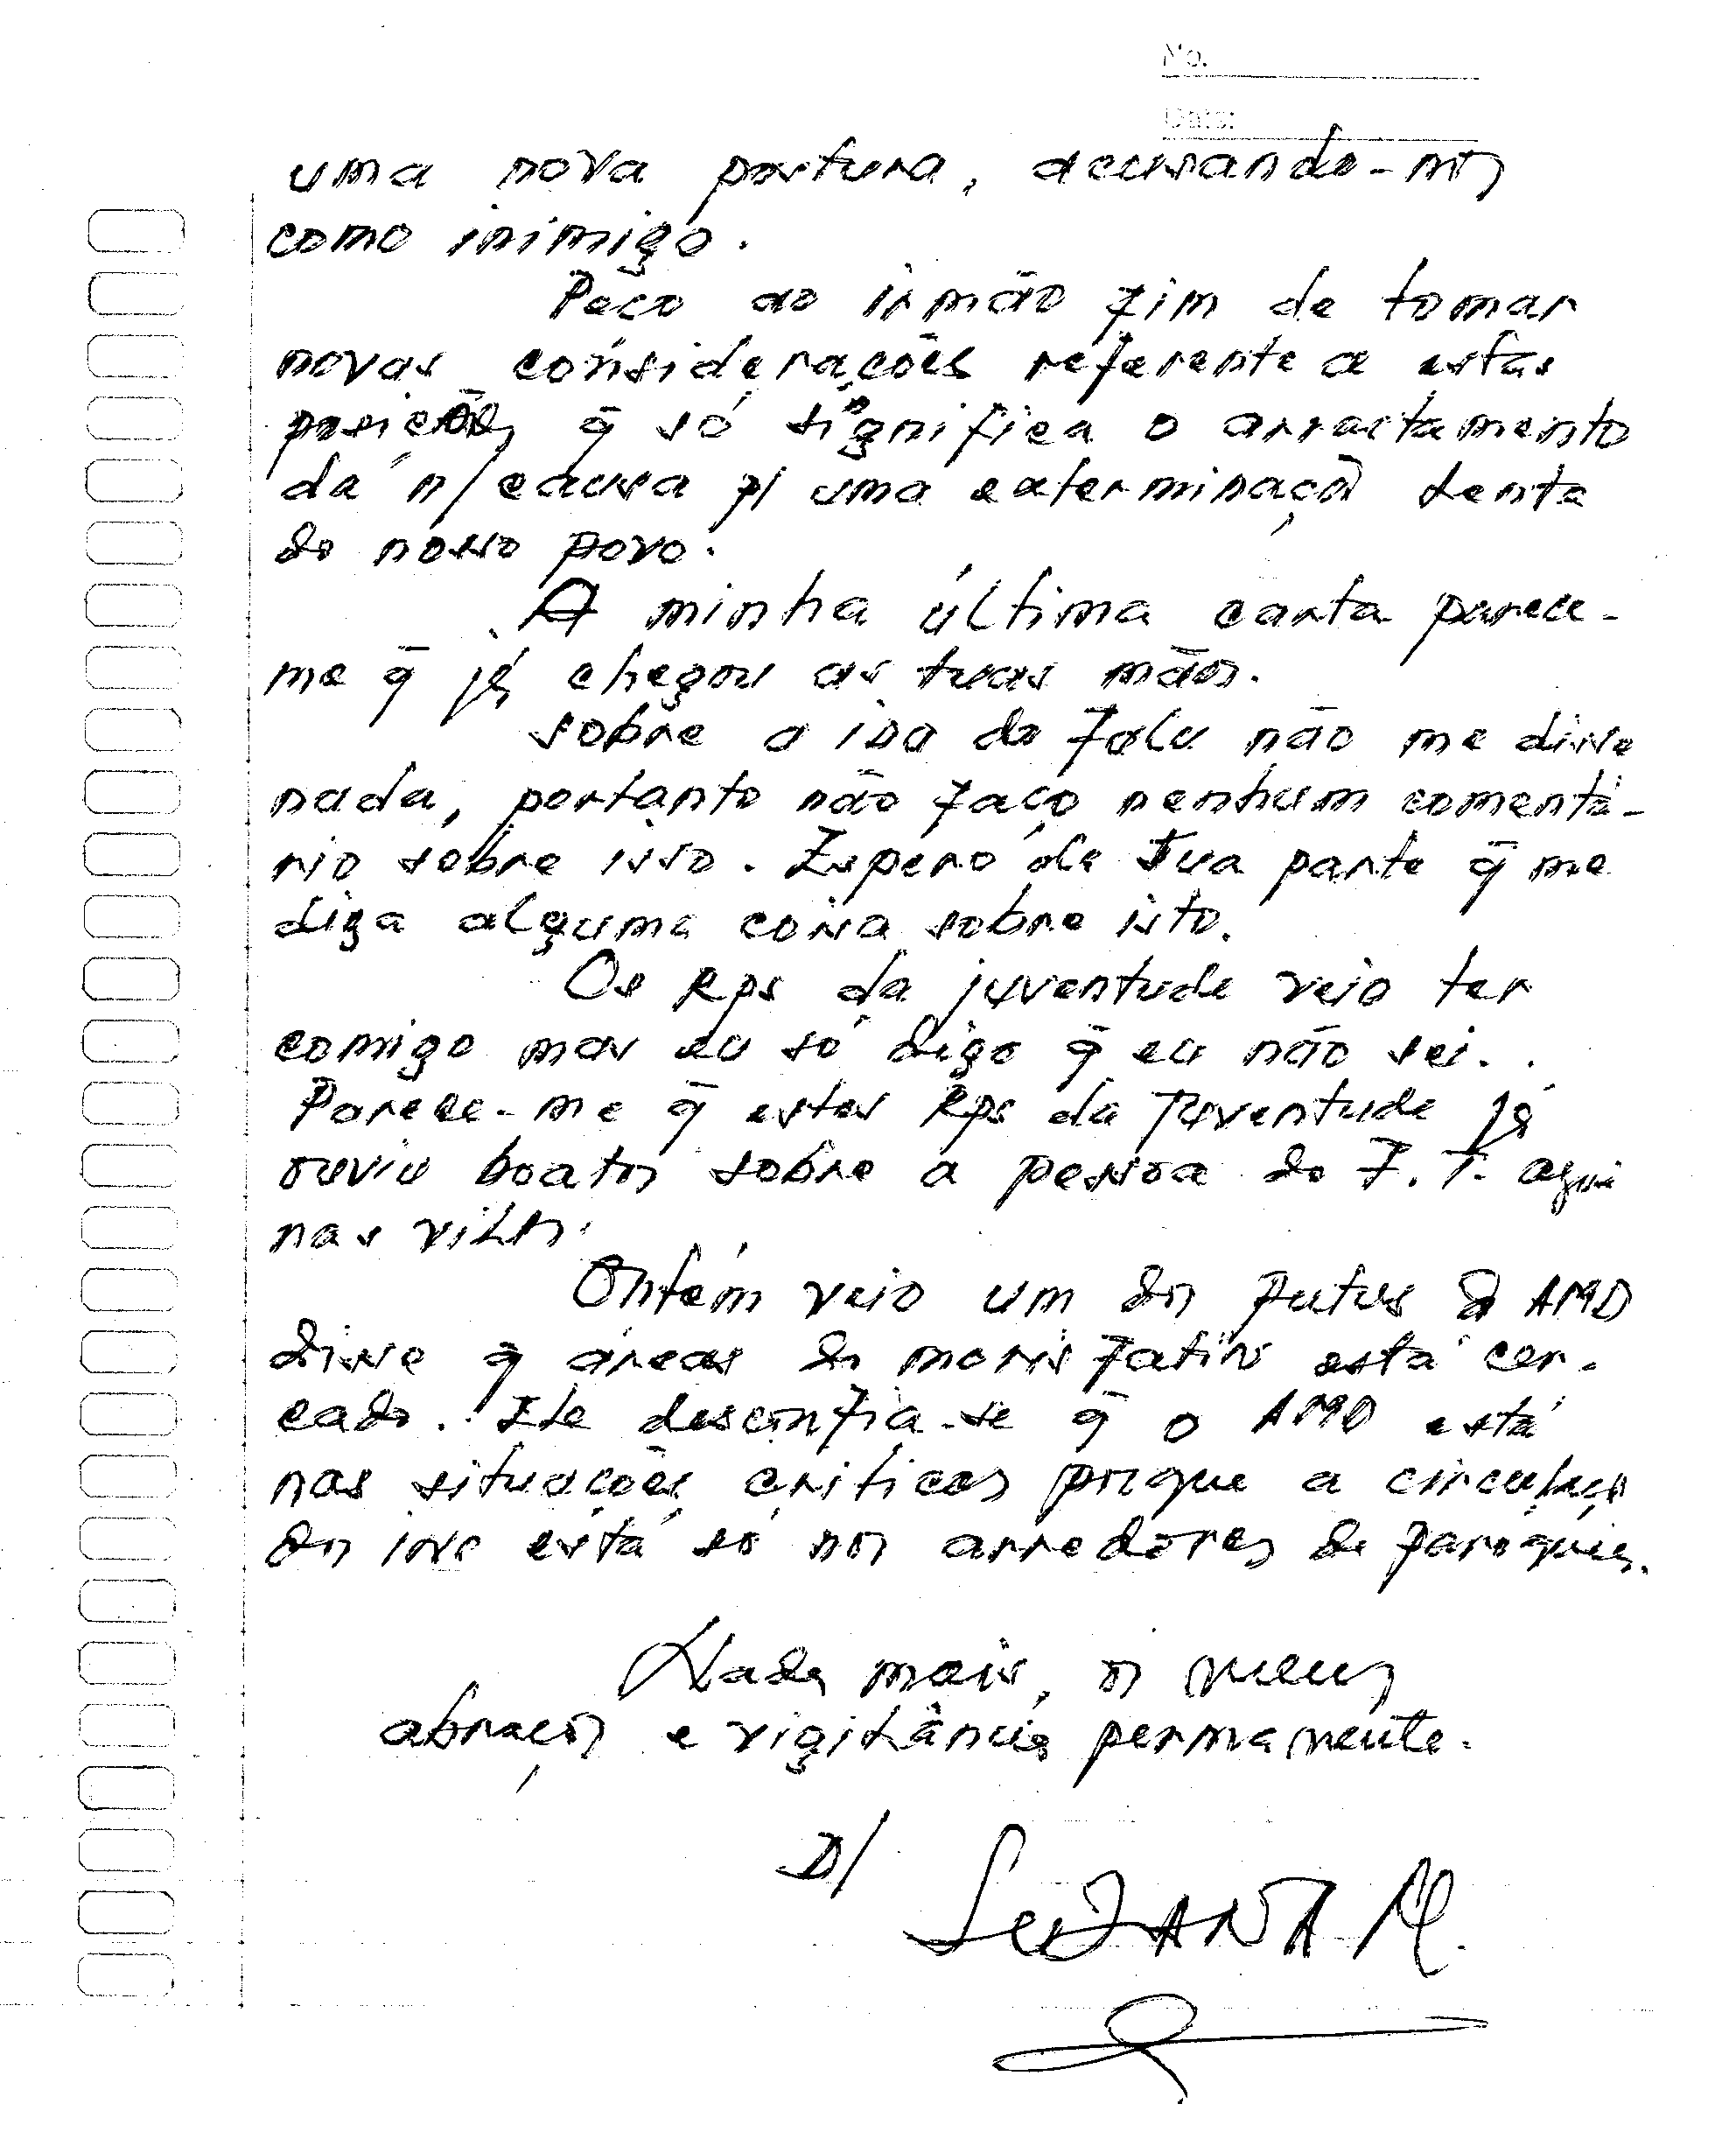 No.
Date:
uma nova postura, acusando-nos
como inimigo.
Peço ao irmão fim de tomar
novas considerações referente a estas
posições q̄ só significa o arrastamento
da n/causa p/ uma exterminação lenta
do nosso povo.
A minha última carta parece-
me q̄ já chegou as tuas mãos.
Sobre a ida do Falu não me disse
nada, portanto não faço nenhum comentá-
rio sobre isso. Espero da tua parte q̄ me
diga alguma coisa sobre isto.
Os Rps da juventude veio ter
comigo mas eu só digo q̄ eu não sei..
Parece-me q̄ estes Rps da Juventude já
ouviu boatos sobre a pessoa do F.T. aqui
nas vilas.
Ontém veio um dos putus do AMD
disse q̄ áreas do moris fatin está cer-
cado. Ele desconfia-se q̄ o AMD está
nas situações criticas porque a circulação
dos ins está só nos arredores de paróquias.
Nada mais, os meus
abraços e vigilância permanente.
D/
M.